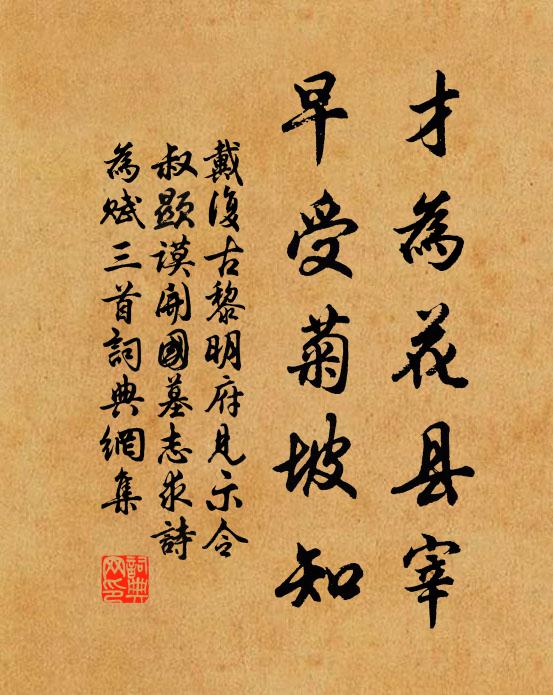 才為花县宰
早受菊坡知
戴復古黎明府見示令
叔顯謨開國墓志求詩
為赋三首詞典網集
詞典網印